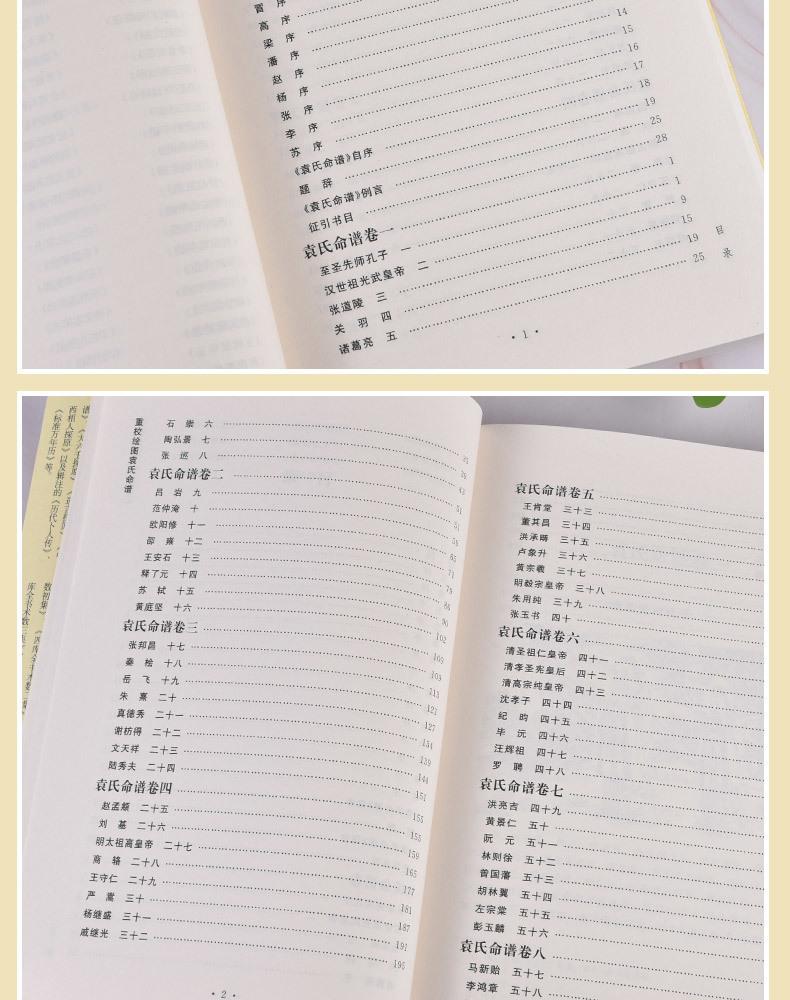 高 序
梁 序
潘 序
赵 序
杨 序 14
张 序 15
李 序 16
苏 序 17
《袁氏命谱》自序 18
题 辞 19
《袁氏命谱》例言 25
征引书目 28
袁氏命谱卷一 1
至圣先师孔子 一 1
汉世祖光武皇帝 二 9
张道陵 三 15
关 羽 四 19
诸葛亮 五 25
目录
• 1 •
《标准万年历》等。
重校绘图袁氏命谱
石 崇 六
陶弘景 七
张 巡 八 43
袁氏命谱卷二 51
吕 岩 九 51
范仲淹 十 56
欧阳修 十一 65
邵 雍 十二 71
王安石 十三 79
释了元 十四 86
苏 轼 十五 90
黄庭坚 十六 102
袁氏命谱卷三 109
张邦昌 十七 109
秦 桧 十八 113
岳 飞 十九 121
朱 熹 二十 127
真德秀 二十一 134
谢枋得 二十二 139
文天祥 二十三 144
陆秀夫 二十四 151
袁氏命谱卷四 155
赵孟頫 二十五 155
刘 基 二十六 159
明太祖高皇帝 二十七 165
商 辂 二十八 177
王守仁 二十九 181
严 嵩 三十 187
杨继盛 三十一 191
戚继光 三十二 195
• 2 •
袁氏命谱卷五
王肯堂 三十三
董其昌 三十四
洪承畴 三十五
卢象升 三十六
黄宗羲 三十七
明毅宗皇帝 三十八
朱用纯 三十九
张玉书 四十
袁氏命谱卷六
清圣祖仁皇帝 四十一
清孝圣宪皇后 四十二
清高宗纯皇帝 四十三
沈孝子 四十四
纪 昀 四十五
毕 沅 四十六
汪辉祖 四十七
罗 聘 四十八
袁氏命谱卷七
洪亮吉 四十九
黄景仁 五十
阮 元 五十一
林则徐 五十二
曾国藩 五十三
胡林翼 五十四
左宗棠 五十五
彭玉麟 五十六
袁氏命谱卷八
马新贻 五十七
李鸿章 五十八